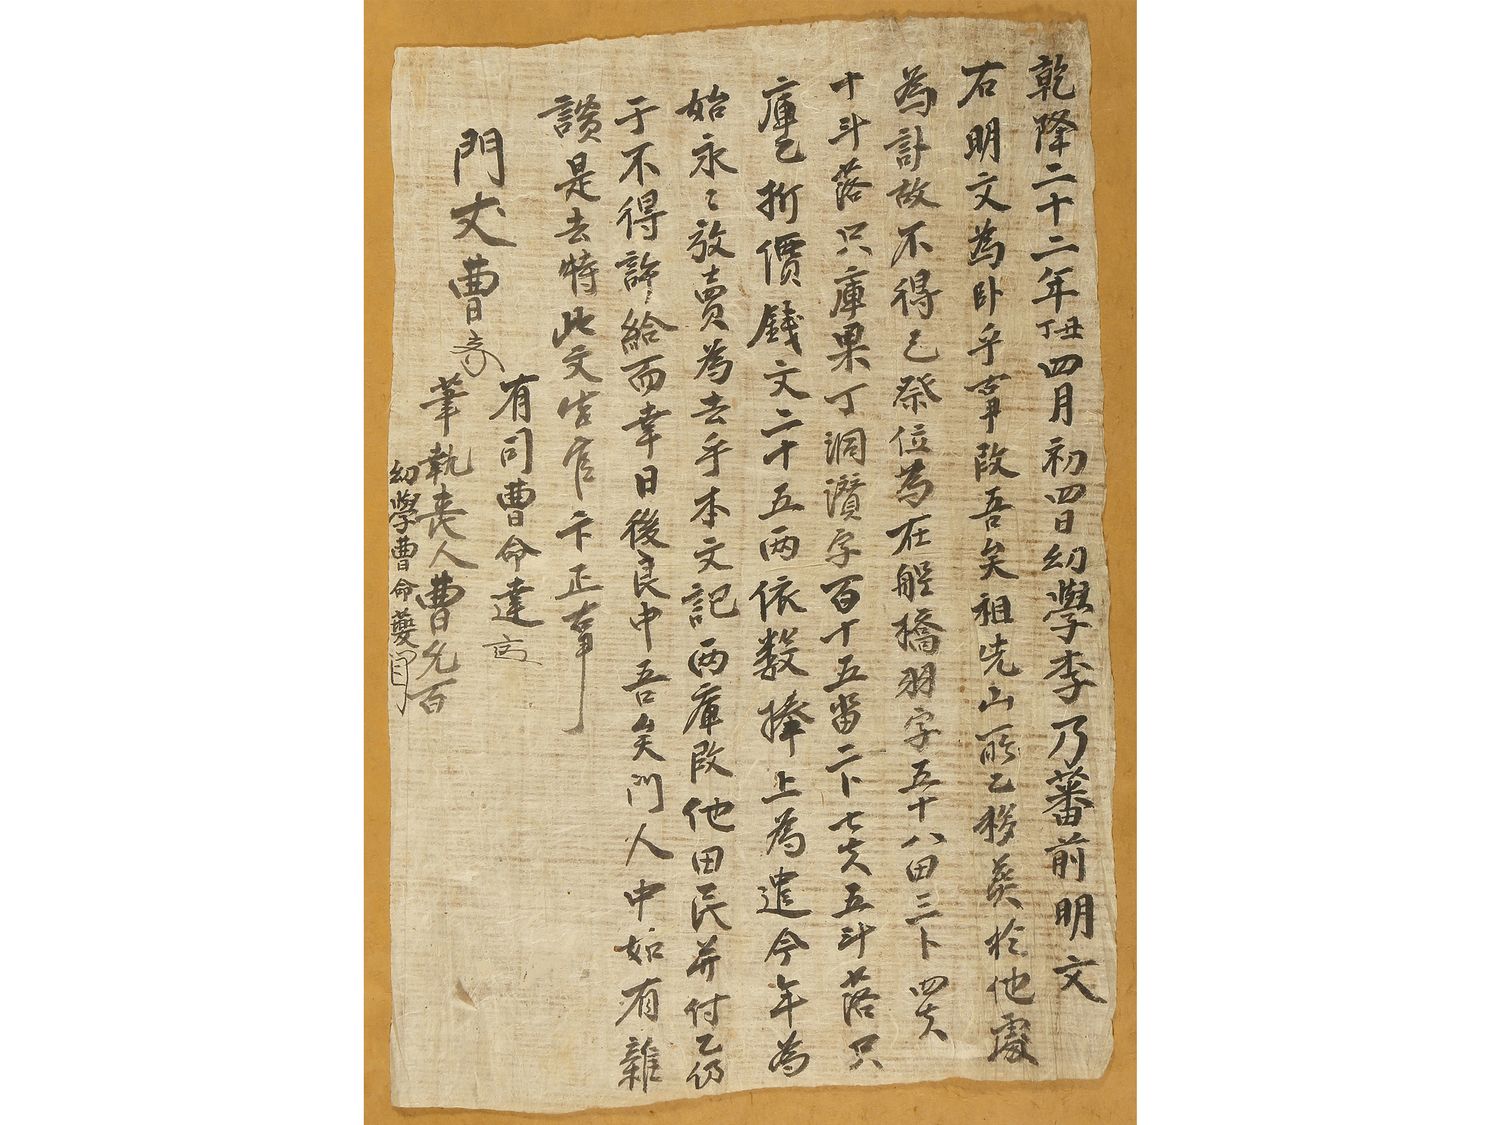 乾隆二十二年丁丑四月初四日幼學李乃蕃前明文
右明文爲臥乎事段吾矣祖先山所乙移葬於他處
爲計故不得已祭位爲在船橋羽字五十八田三卜四夫
十斗落只庫果丁洞瓚字百十五畓二卜七夫五斗落只
庫乙折價錢文二十五兩依數捧上爲遣今年爲
始永〻放賣爲去乎本文記兩庫段他田民幷付乙仍
于不得許給而幸日後良中吾矣門人中如有雜
談是去等此文告官卞正事
門丈曹
有司曹命達
筆執喪人曹允百
幼學曹命夔